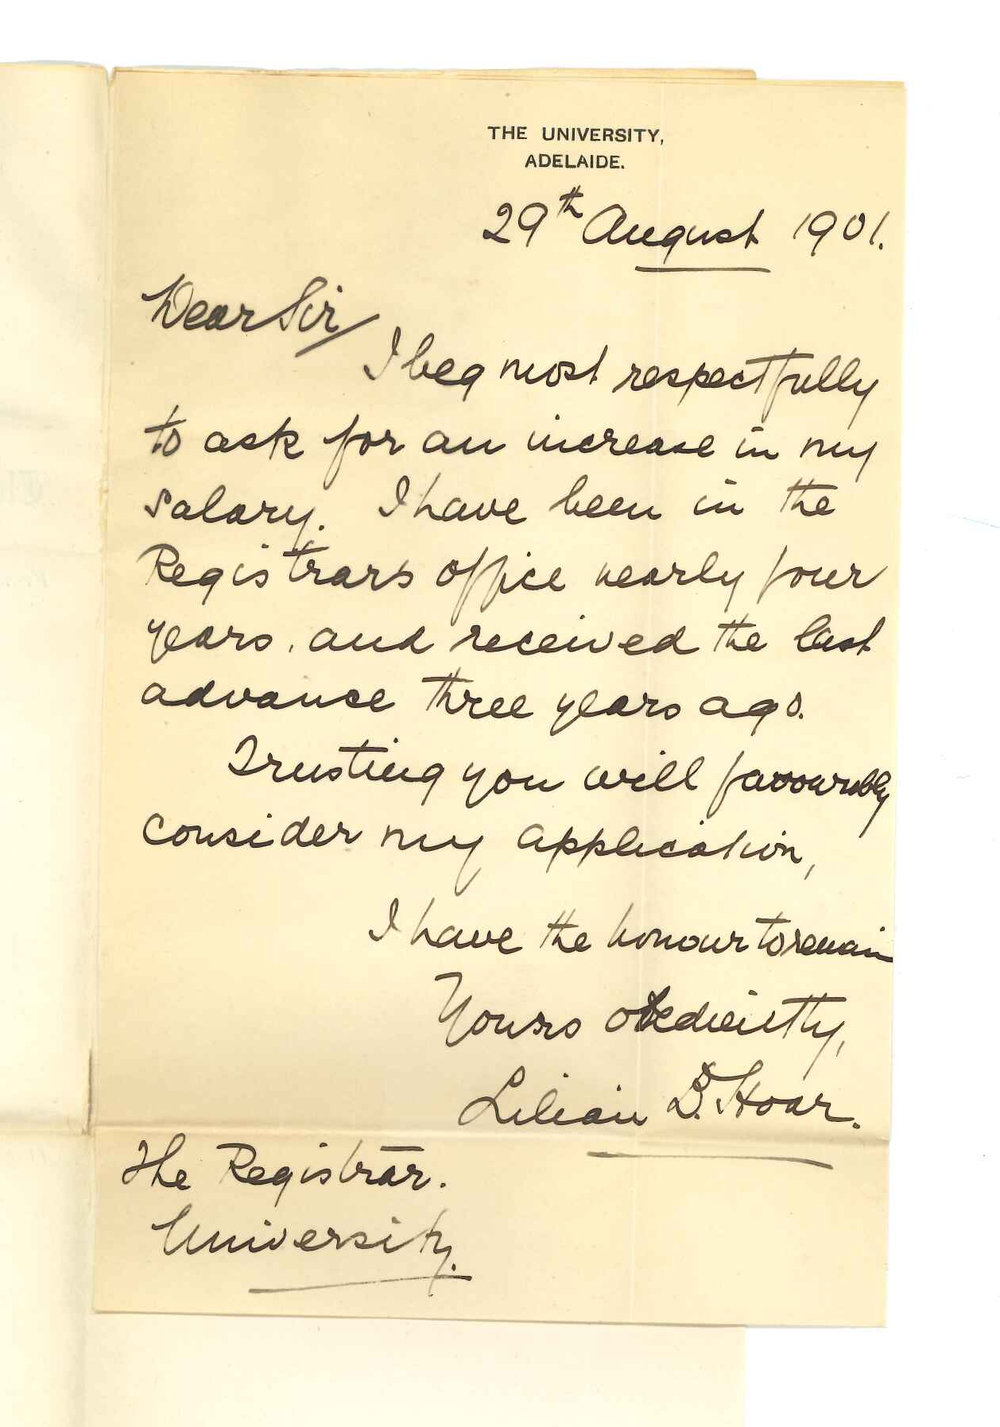 THE UNIVERSITY,
ADELAIDE.
29th August 1901.
Dear Sir
I beg most respectfully
to ask for an increase in my
salary. I have been in the
Registrars office nearly four
years, and received the last
advance three years ago.
Trusting you will favourably
consider my application,
I have the honour to remain
Yours obediently,
Lilian B. Hoar.
The Registrar.
University.